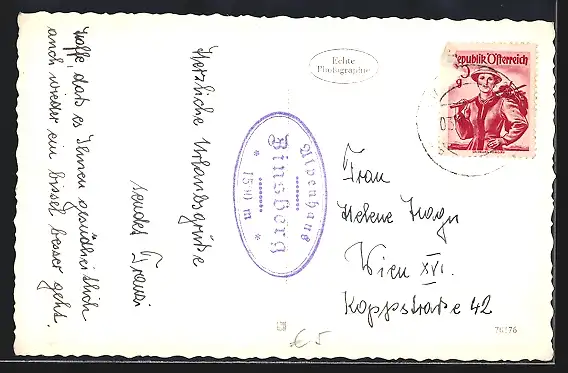 Herzliche Urlaubsgrüße
sendet Franzi
Hoffe, daß es Ihnen gesundheitlich
auch wieder ein bissel besser geht.
Echte
Photographie
Alpenhaus
Zinsberg
* 1500 m *
Republik Österreich
Frau
Helene Hagn
Wien XVI.
Koppstraße 42
€ 5